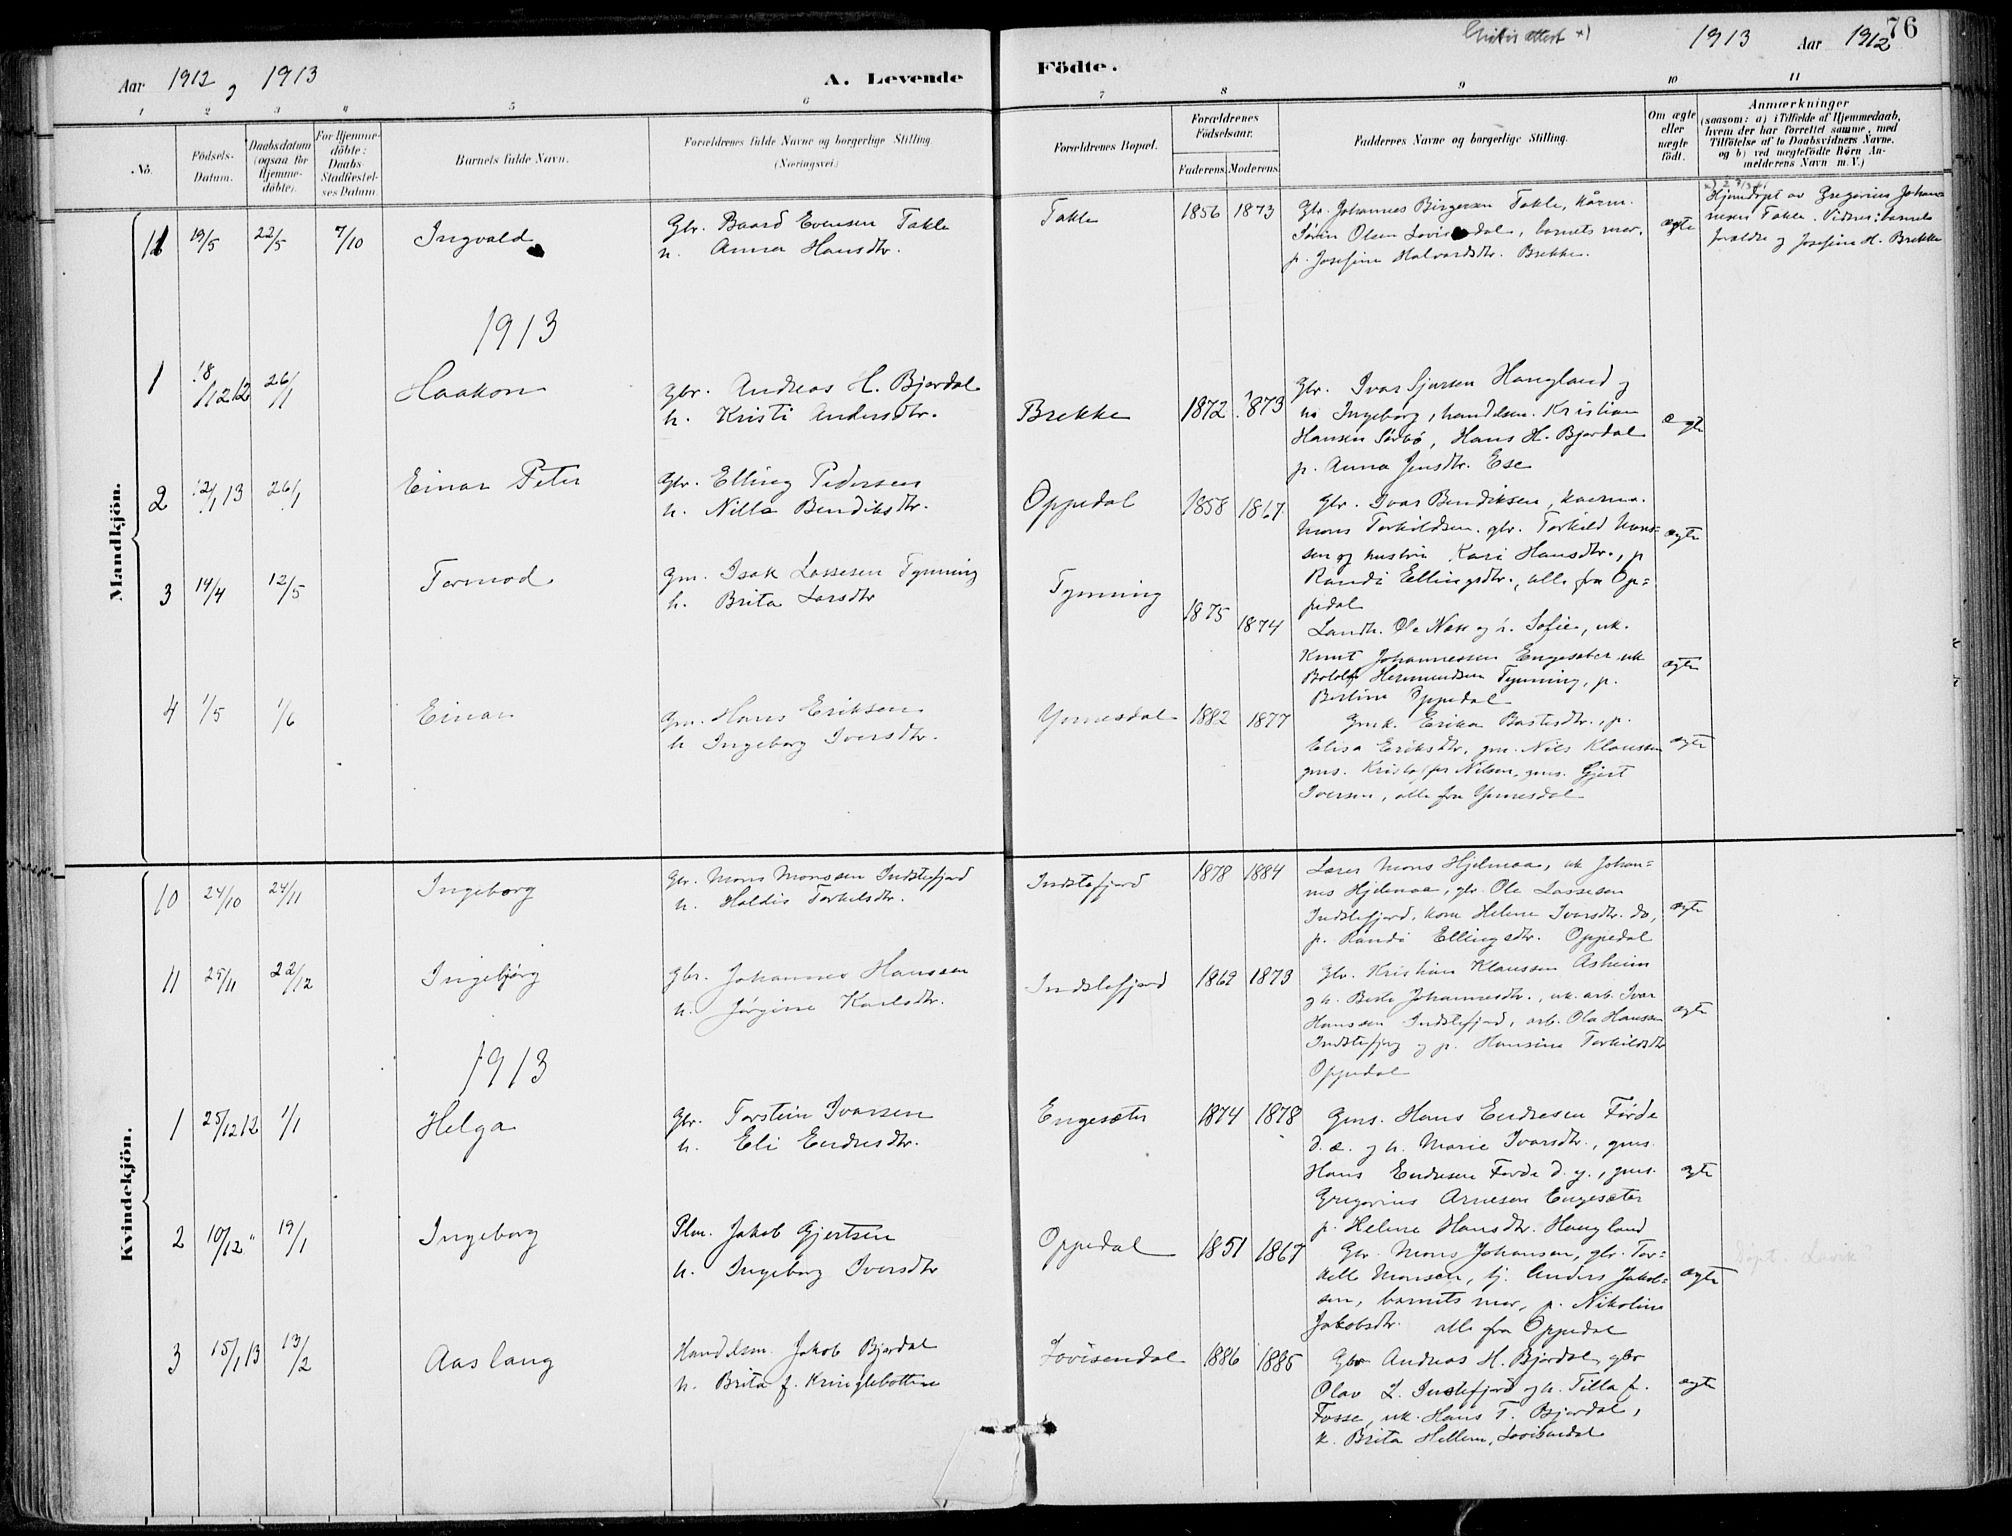 76
Aar 1912 og 1913
A. Levende
Födte.
1913 Aar 1912
1 2 3 4 5 6 7 8 9 10 11
No.
Födsels-
Datum.
Daabsdatum
(ogsaa för
Hjemme-
döbte).
For Hjemme-
döbte:
Daabs-
Stadfæstel-
ses Datum
Barnets fulde Navn.
Forældrenes fulde Navne og borgerlige Stilling
(Næringsvei)
Forældrenes Bopæl.
Forældrenes
Födselsaar.
Faderens Moderens
Faddernes Navne og borgerlige Stilling.
Om ægte
eller
uægte
födt.
Anmærkninger
(saasom: a) i Tilfælde af Hjemmedaab,
hvem der har forrettet samme, med
Tilföielse af to Daabsvidners Navne,
og b) ved uægtefödte Börn An-
melderens Navn m. V.)
Mandkjön.
11 19/5 22/5 7/10 Ingvald
Gbr. Baard Evensen Takle
h. Anna Hansdtr.
Takle 1856 1873
Gbr. Johannes Birgersen Takle,
Søren Olsen Lovisendal, barnets mor,
p. Josefine Halvardsdtr. Brekke.
ægte
Hjemdøpt av Gregorius Johan-
nesen Takle. Vidner: barnets
forældre og Josefine H. Brekke
1913
1 18/12 12 26/1 Haakon
Gbr. Andreas H. Bjordal
h. Kristi Andersdtr.
Brekke 1872 1873
Gbr. Ivar Sjursen Haugland og
h. Ingeborg, handelsm. Kristian
Hansen Sørbø, Hans H. Bjordal
p. Anna Jensdtr. Ese
ægte
2 12/1 13 26/1 Einar Peter
Gbr. Elling Pedersen
h. Nille Bendiksdtr.
Oppedal 1858 1867
Gbr. Ivar Bendiksen, kaarm.
Mons Torkildsen, gbr. Torkild Mons-
sen og hustru Kari Hansdtr., p.
Randi Ellingsdtr., alle fra Op-
pedal
ægte
3 14/4 12/5 Tormod
Gm. Isak Lassesen Tynning
h. Brita Larsdtr
Tynning 1875 1874
Landh. Ole Nese og h. Sofie, uk.
Knut Johannessen Engesæter uk
Botolf Hermundsen Tynning, p.
Bertine Oppedal
ægte
4 1/5 1/6 Einar
Gm. Hans Eriksen
h. Ingeborg Iversdtr.
Ynnesdal 1882 1877
Gmk. Erika Bastesdtr., p.
Elisa Eriksdtr., gm. Nils Klaussen
gms. Kristoffer Nilsen, gms. Gjert
Iversen, alle fra Ynnesdal
ægte
Kvindekjön.
10 24/10 24/11 Ingeborg
Gbr. Mons Monssen Indstefjord
h. Haldis Torkelsdtr.
Indstefjord 1878 1884
Lærer Mons Hjelmaa, uk Johan-
nes Hjelmaa, gbr. Ole Lassesen
Indstefjord, kone Helene Ivarsdtr. do,
p. Randi Ellingsdtr. Oppedal
ægte
11 25/11 22/12 Ingebjørg
Gbr. Johannes Hanssen
h. Jørgine Karlsdtr.
Indstefjord 1862 1873
Gbr. Kristian Klaussen Asheim
og h. Berte Johannesdtr., uk. arb. Ivar
Hanssen Indstefjord, arb. Ola Hanssen
Indstefjord og p. Hansine Torkildsdtr
Oppedal
ægte
1913
1 25/12 12 1/1 Helga
Gbr. Torstein Ivarsen
h. Eli Endresdtr.
Engesæter 1874 1878
Gms. Hans Endresen Førde
d. æ. og h. Marie Ivarsdtr., gms.
Hans Endresen Førde d. y., gms.
Gregorius Arnesen Engesæter
p. Helene Hansdtr. Haugland
ægte
2 10/12 " 19/1 Ingeborg
Plm. Jakob Gjertsen
h. Ingeborg Iversdtr
Oppedal 1851 1867
Gbr. Mons Johansen, gbr. Tor-
kell Monsen, tj. Anders Jakob-
sen, barnets mor, p. Nikoline
Jakobsdtr. alle fra Oppedal
ægte
Døpt i Lavik?
3 15/1 13 13/2 Aaslaug
Handelsm. Jakob Bjordal
h. Brita f. Kringlebotten
Lovisendal 1886 1885
Gbr Andreas H. Bjordal, gbr
Olav L. Instefjord og h. Tilla f.
Fosse, uk. Hans T. Bjordal,
k. Brita Hellem, Lovisendal
ægte